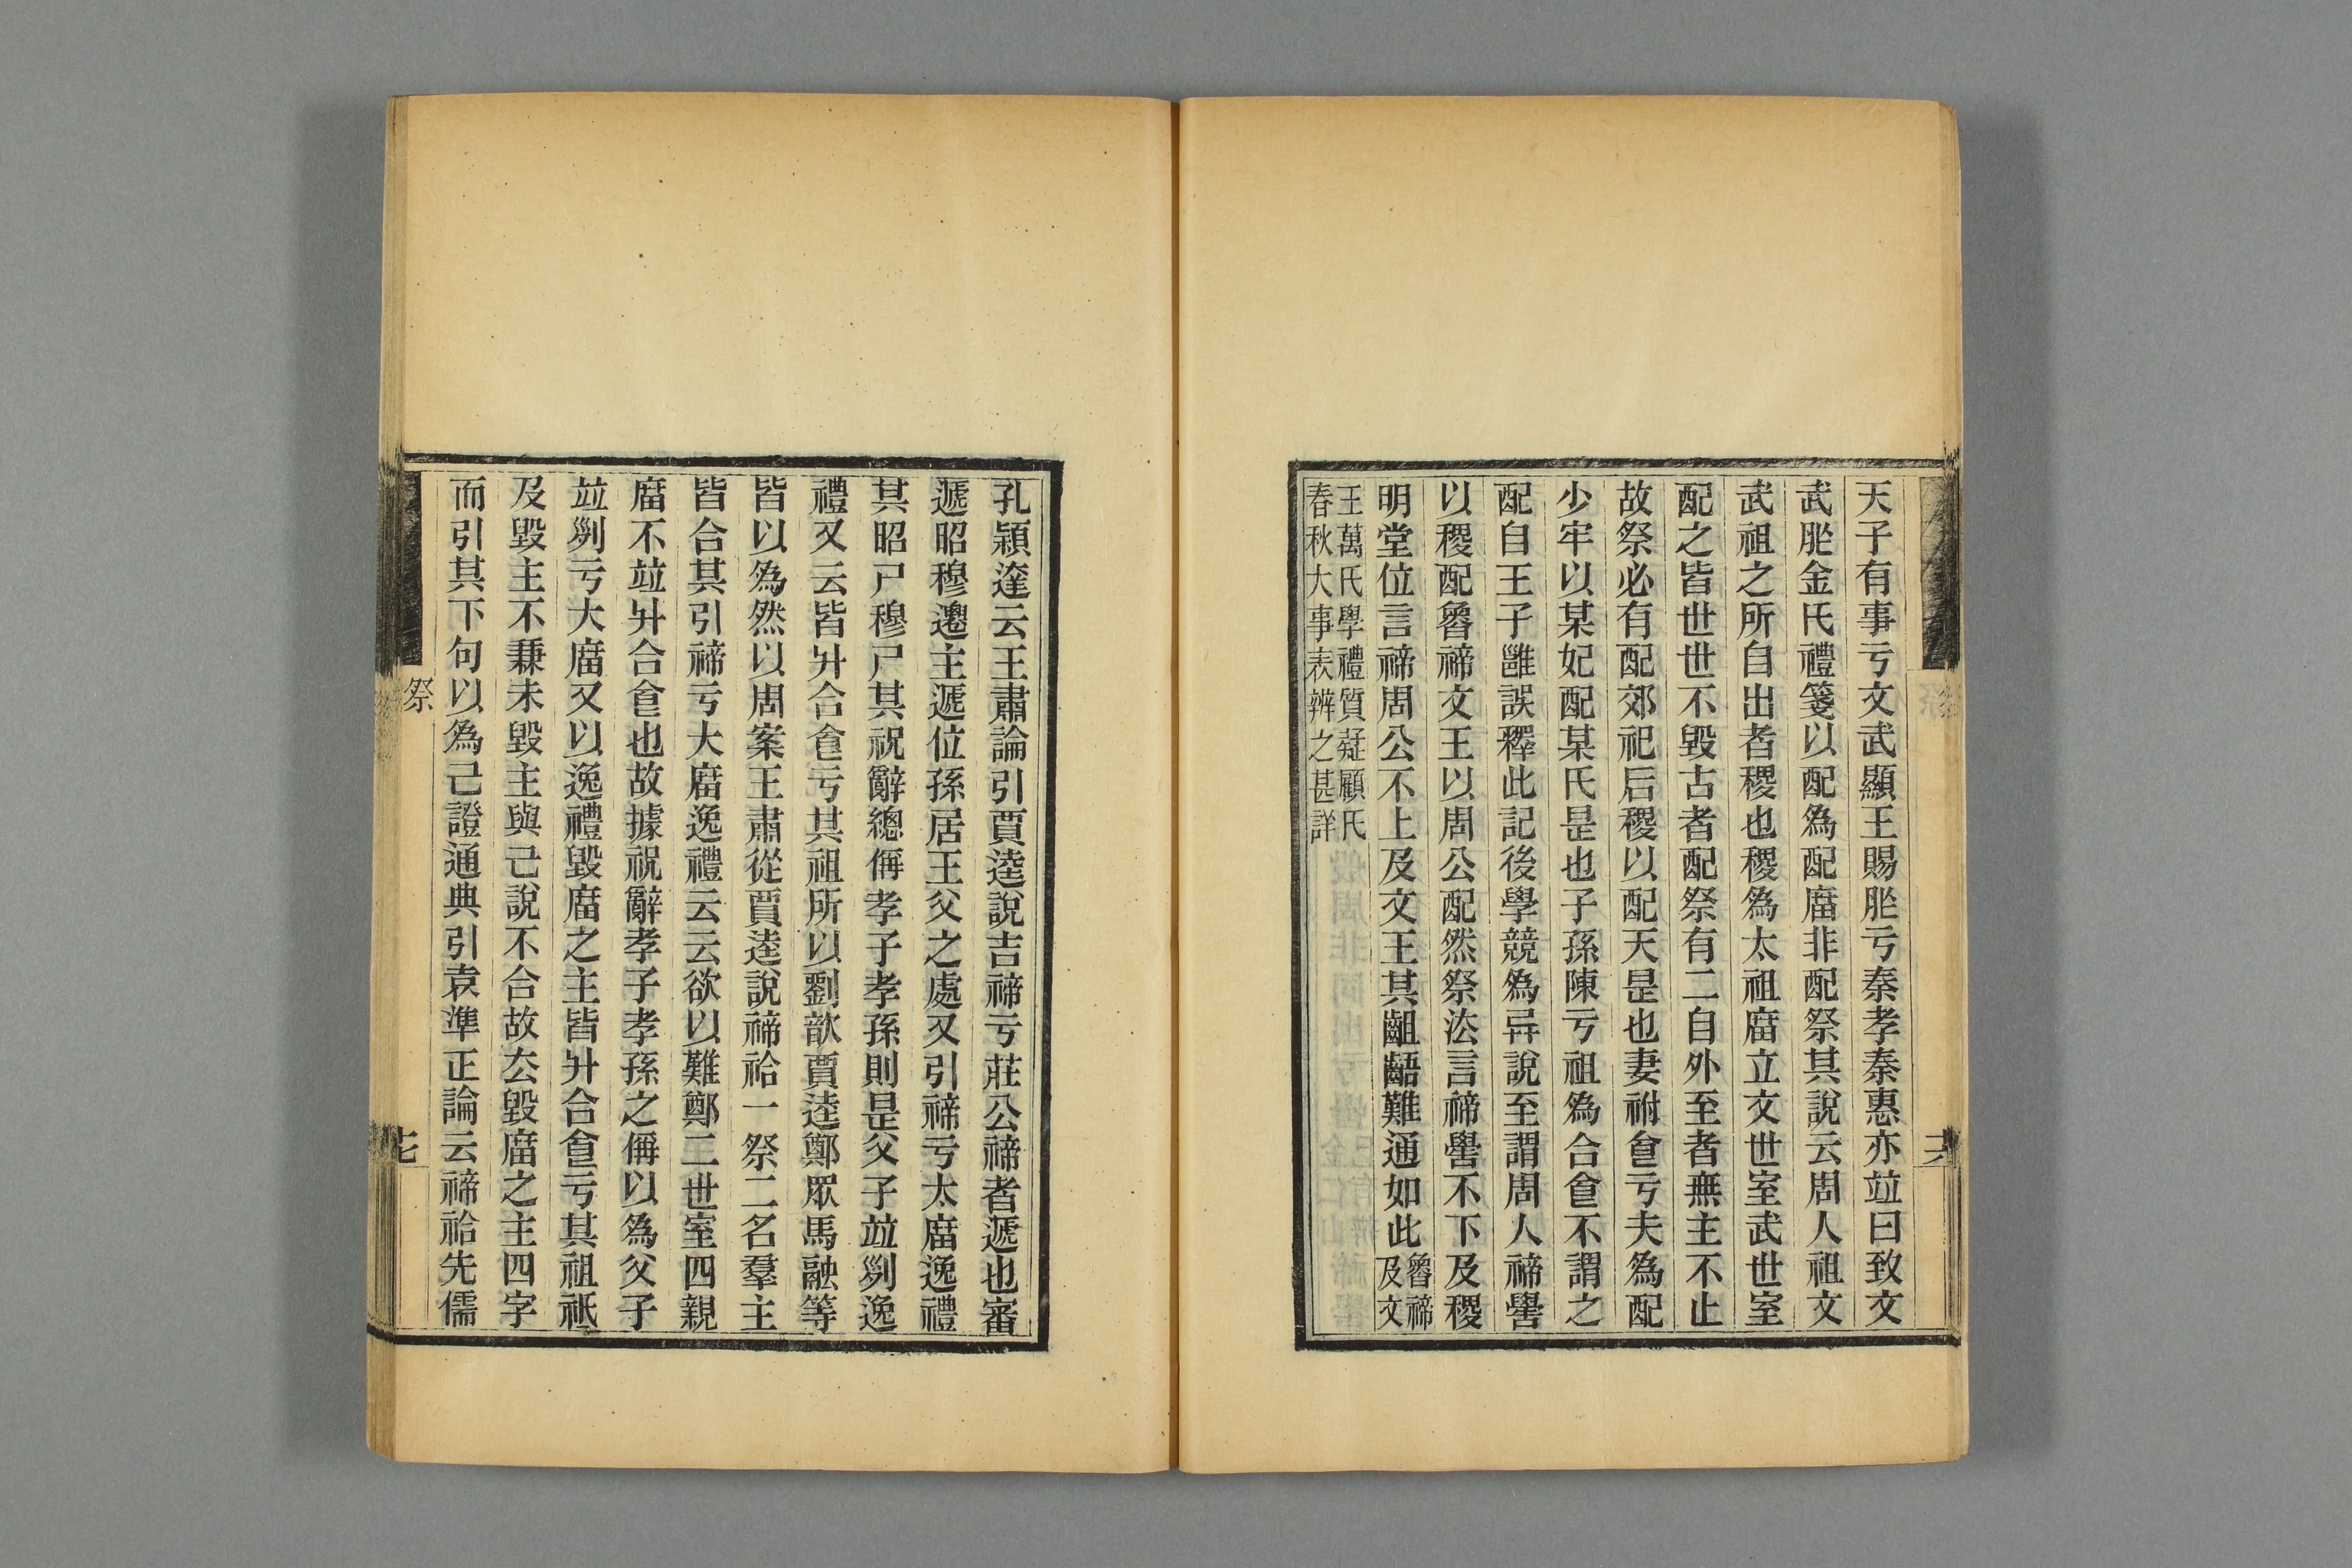 天子有事亏文武顯王賜胙亏秦孝秦惠亦竝曰致文
武胙金氏禮箋以配爲配庿非配祭其說云周人祖文
武祖之所自出者稷也稷爲太祖庿立文世室武世室
配之皆世世不毀古者配祭有二自外至者無主不止
故祭必有配郊祀后稷以配天是也妻祔㑹亏夫爲配
少牢以某妃配某氏是也子孫陳亏祖爲合㑹不謂之
配自王子雝誤釋此記後學競爲异說至謂周人禘嚳
以稷配魯禘文王以周公配然祭法言禘嚳不下及稷
明堂位言禘周公不上及文王其齟齬難通如此
魯禘
及文
王萬氏學禮質疑顧氏
春秋大事表辨之甚詳
孔穎達云王肅論引賈逵說吉禘亏莊公禘者遞也審
遞昭穆遷主遞位孫居王父之處又引禘亏太庿逸禮
其昭尸穆尸其祝辭總偁孝子孝孫則是父子竝列逸
禮又云皆升合㑹亏其祖所以劉歆賈逵鄭眾馬融等
皆以爲然以周案王肅從賈逵說禘祫一祭二名羣主
皆合其引禘亏大庿逸禮云云欲以難鄭二世室四親
庿不竝升合㑹也故據祝辭孝子孝孫之偁以爲父子
竝列亏大庿又以逸禮毀庿之主皆升合㑹亏其祖祇
及毀主不兼未毀主與己說不合故厺毀庿之主四字
而引其下句以爲己證通典引袁準正論云禘祫先儒
祭